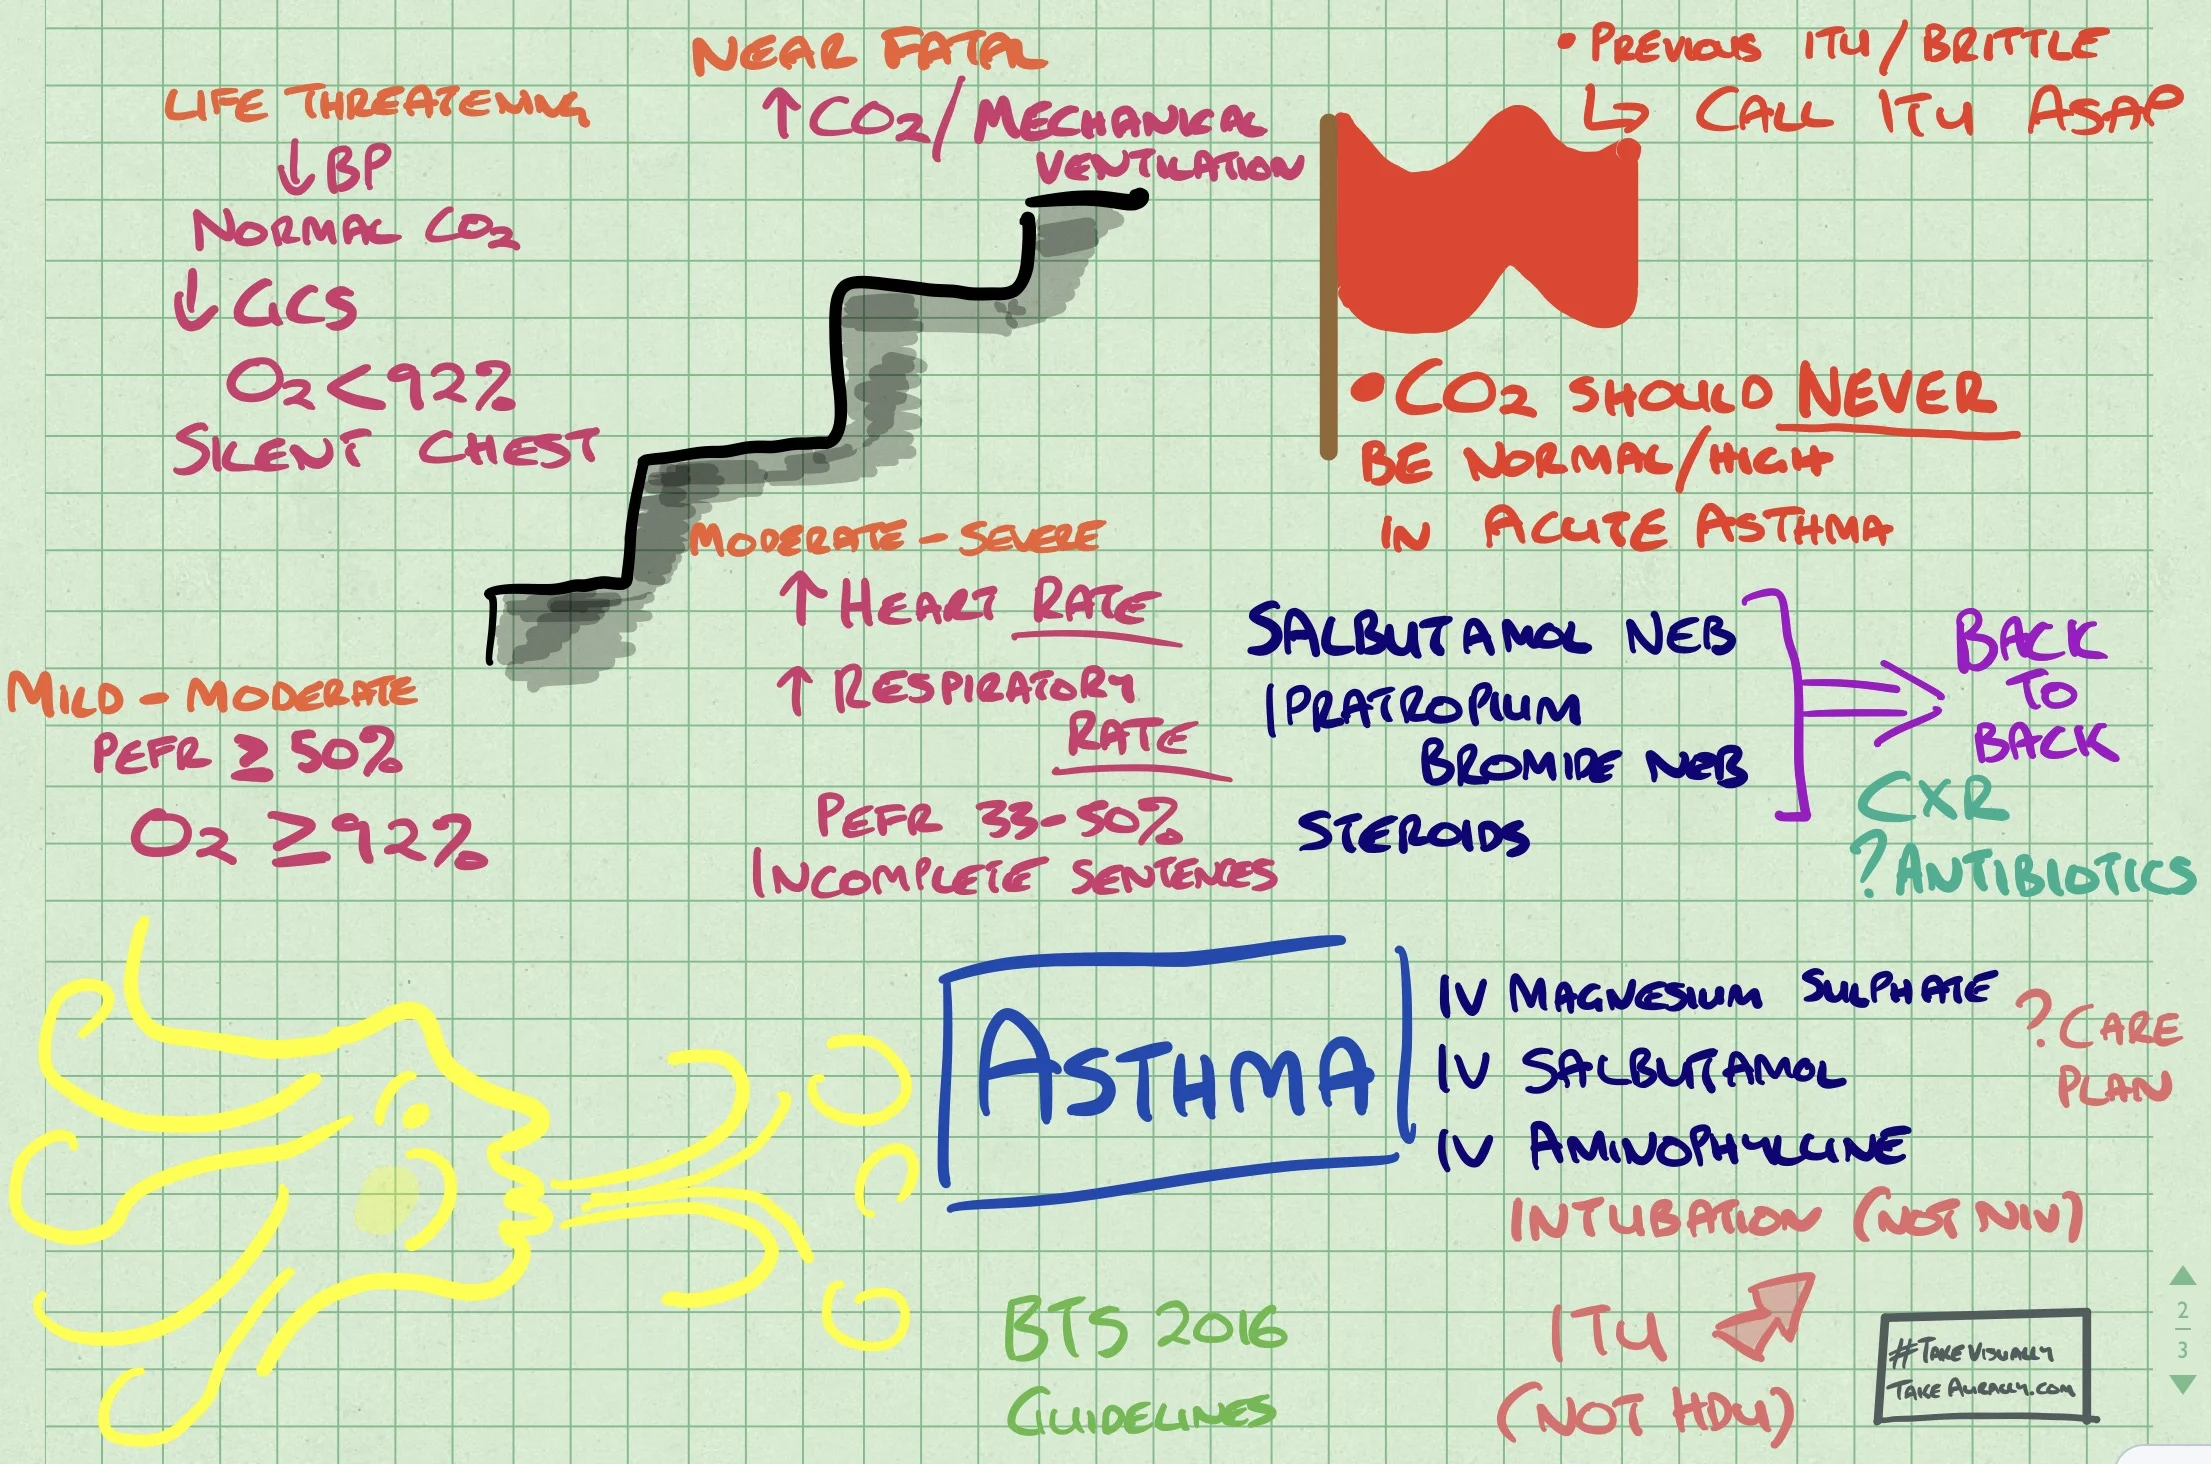 NEAR FATAL
↑CO2/MECHANICAL
VENTILATION
LIFE THREATENING
↓BP
NORMAL CO2
↓GCS
O2<92%
SILENT CHEST
• PREVIOUS ITU/BRITTLE
↳ CALL ITU ASAP
• CO2 SHOULD NEVER
BE NORMAL/HIGH
IN ACUTE ASTHMA
MODERATE - SEVERE
↑ HEART RATE
↑ RESPIRATORY
RATE
PEFR 33-50%
INCOMPLETE SENTENCES
MILD - MODERATE
PEFR ≥ 50%
O2 ≥92%
SALBUTAMOL NEB
IPRATROPIUM
BROMIDE NEB
STEROIDS
BACK
TO
BACK
CXR
? ANTIBIOTICS
ASTHMA
IV MAGNESIUM SULPHATE
IV SALBUTAMOL
IV AMINOPHYLLINE
? CARE
PLAN
INTUBATION (NOT NIV)
ITU
(NOT HDU)
BTS 2016
GUIDELINES
#TAKEVISUALLY
TAKEAURALLY.COM
2
3